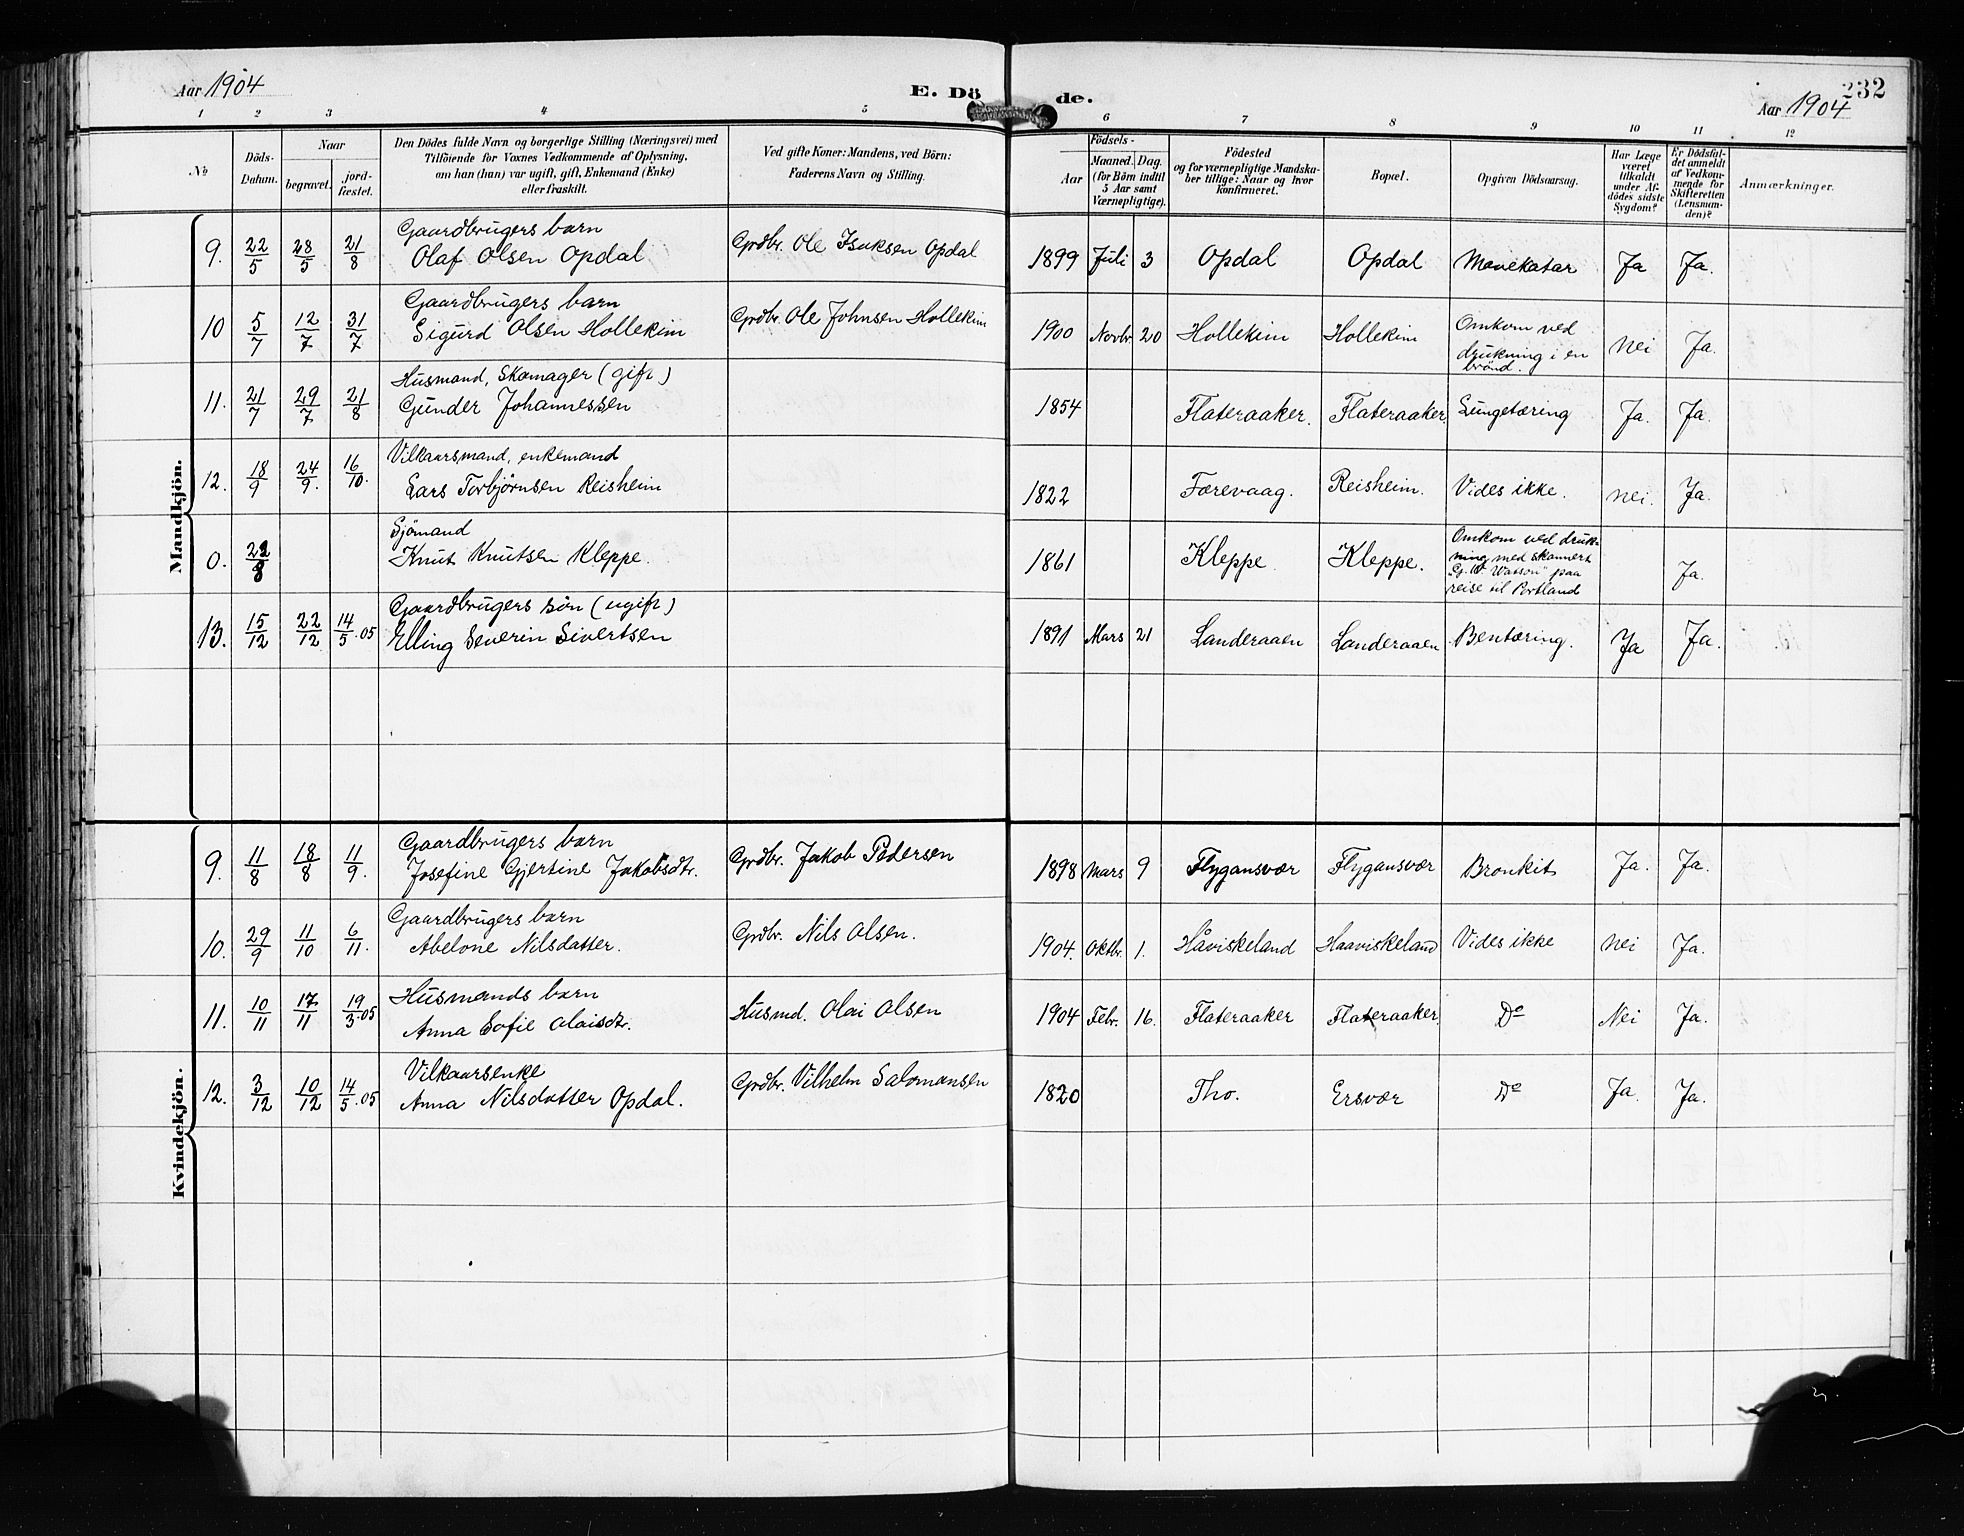 Aar 1904
E. Dö
de.
232
Aar 1904
1 2 3 4 5 6 7 8 9 10 11 12
№
Döds-
Datum.
Naar
begravet.
jord-
fæstet.
Den Dödes fulde Navn og borgerlige Stilling (Næringsvei) med
Tilföiende for Voxnes Vedkommende af Oplysning,
om han (hun) var ugift, gift, Enkemand (Enke)
eller fraskilt.
Ved gifte Koner: Mandens, ved Börn:
Faderens Navn og Stilling.
Födsels-
Aar
Maaned. Dag.
(for Börn indtil
5 Aar samt
Værnepligtige).
Födested
og for værnepligtige Mandska-
ber tillige: Naar og hvor
konfirmeret.
Bopæl.
Opgiven Dödsaarsag.
Har Læge
været
tilkaldt
under Af-
dödes sidste
Sygdom?
Er Dödsfal-
det anmeldt
af Vedkom-
mende for
Skifteretten
(Lensman-
den)?
Anmærkninger.
Mandkjön.
Gaardbrugers barn
9. 22/5 28/5 21/8 Olaf Olsen Opdal Grdbr. Ole Isaksen Opdal 1899 Juli 3 Opdal Opdal Mavekatar Ja Ja.
Gaardbrugers barn
10 5/7 12/7 31/7 Sigurd Olsen Hollekim Grdbr. Ole Johnsen Hollekim 1900 Novbr. 20 Hollekim Hollekim Omkom ved
drukning i en
brönd. Nei Ja.
Husmand, Skomager (gift)
11. 21/7 29/7 21/8 Gunder Johannessen 1854 Flateraaker. Flateraaker. Lungetæring Ja. Ja.
Vilkaarsmand, enkemand
12. 18/9 24/9. 16/10. Lars Torbjørnsen Reisheim 1822 Færevaag. Reisheim. Vides ikke. Nei. Ja.
Sjömand
0. 22/8 Knut Knutsen Kleppe. 1861 Kleppe. Kleppe. Omkom ved druk-
ning med skonnert
"G. W. Watson" paa
reise til Portland Ja.
Gaardbrugers sön (ugift)
13. 15/12 22/12 14/5.05 Elling Severin Sivertsen 1891 Mars 21 Landeraaen Landeraaen Bentæring. Ja Ja.
Kvindekjön.
Gaardbrugers barn
9. 11/8 18/8 11/9. Josefine Gjertine Jakobsdtr. Grdbr. Jakob Pedersen 1898 Mars 9 Flygansvær Flygansvær Bronkit Ja. Ja.
Gaardbrugers barn
10. 29/9 11/10 6/11. Abelone Nilsdatter. Grdbr. Nils Olsen. 1904. Oktbr. 1. Håviskeland Haaviskeland Vides ikke Nei Ja.
Husmands barn
11. 10/11 17/11 19/3.05 Anna Sofie Olaisdtr. Husmd. Olai Olsen 1904 Febr. 16. Flateraaker Flateraaker. Do Nei Ja.
Vilkaarsenke
12. 3/12 10/12 14/5.05 Anna Nilsdatter Opdal. Grdbr. Vilhelm Salomonsen 1820 Tho. Ersvær Do Ja. Ja.